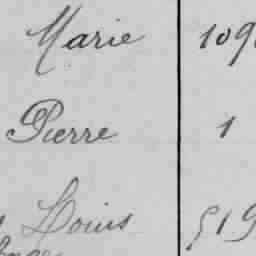 Marie 109
Pierre 1
Louis 519